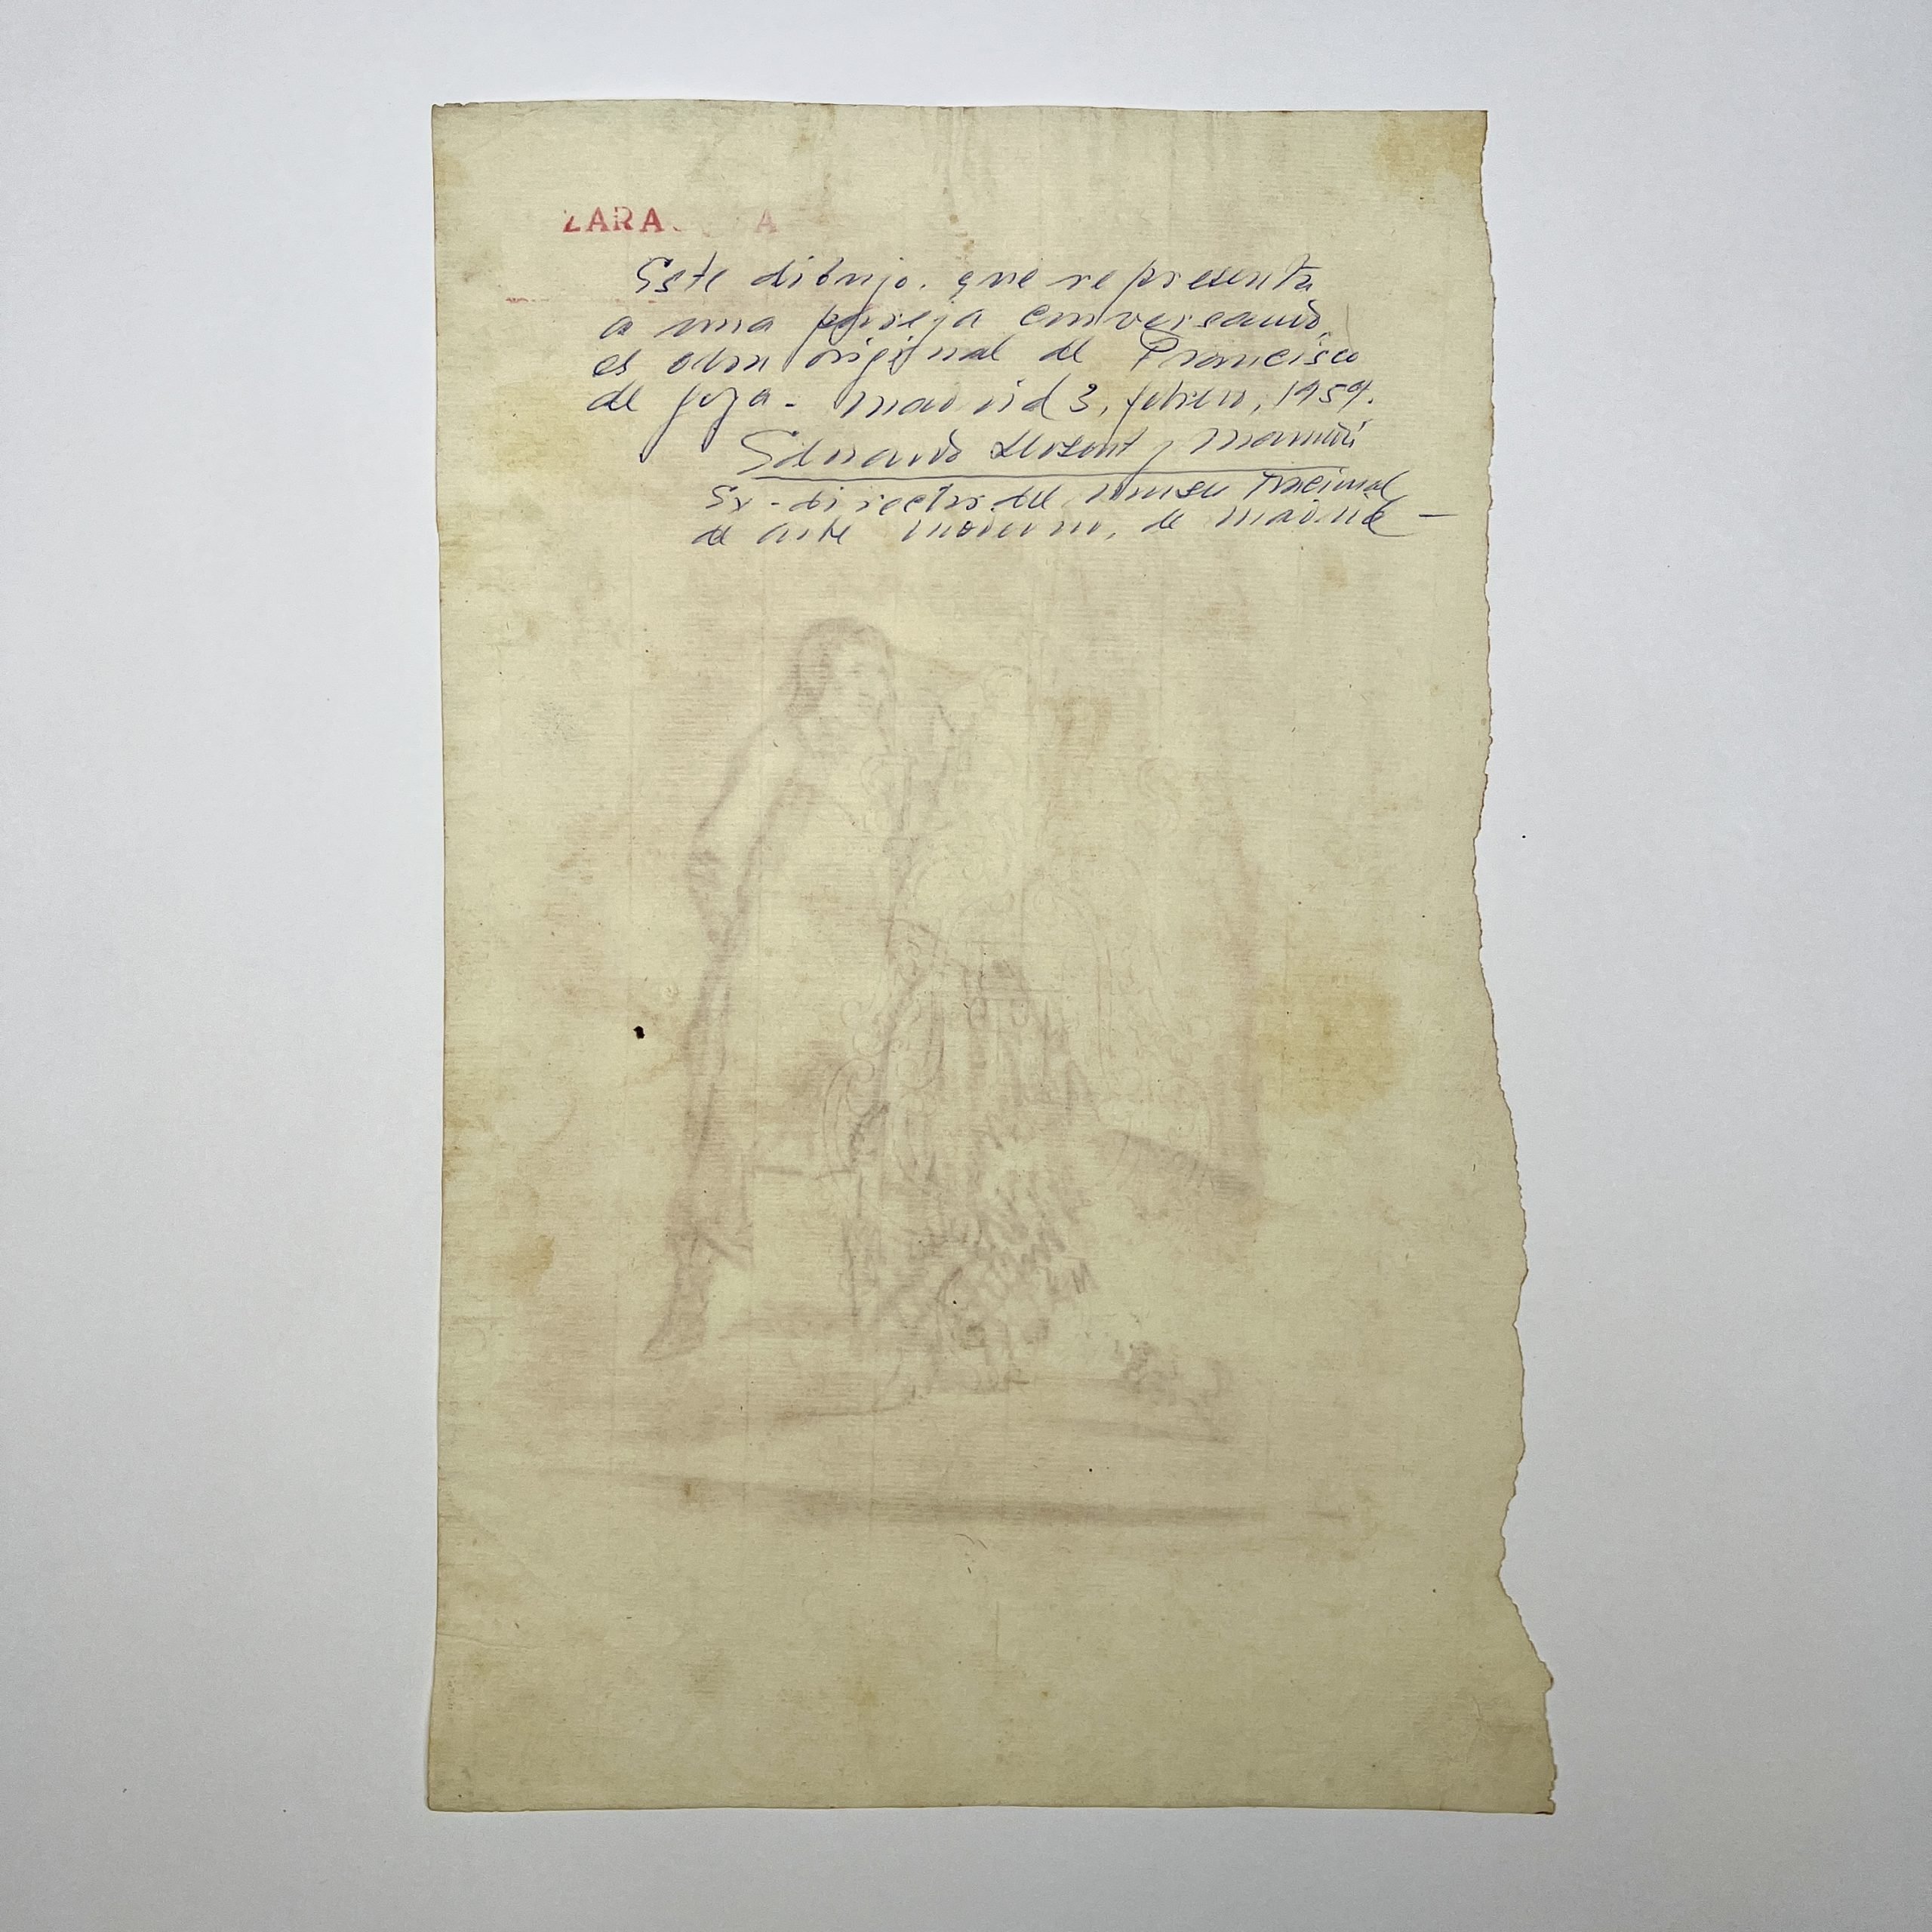 ZARA A
Este dibujo. que representa
a una pareja conversando,
es obra original de Francisco
de Goya - Madrid 3, febrero, 1959.
Eduardo Llosent y Marañón
Ex-director del Museo Nacional
de Arte Moderno, de Madrid -